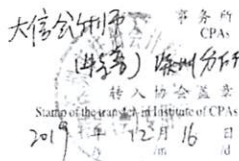 大信会计师 事务所
CPAs
(特普) 深圳分所
转入协会盖章
Stamp of the transfer-in Institute of CPAs
2019年12月16日
/y /m /d